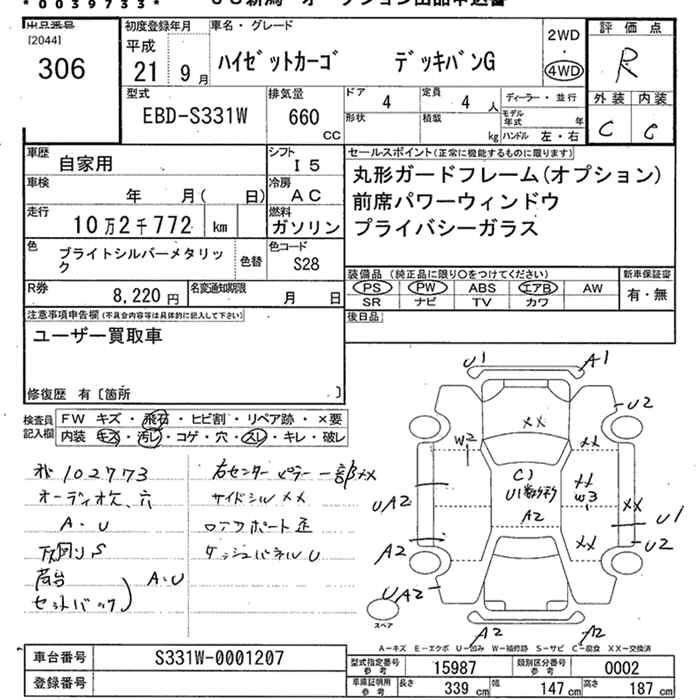 *0039733*
出品番号 初度登録年月 車名・グレード 2WD 評価点
[2044] 平成 ・ R
306 21 9月 ハイゼットカーゴ デッキバンG 4WD
型式 排気量 ドア 4 定員 4人 ディーラー・並行 外装 内装
EBD-S331W 660 CC 形状 積載 kg モデル年式 年 C C
ハンドル 左・右
車歴 自家用 シフト I5 セールスポイント(正常に機能するものに限ります)
車検 年 月( 日) 冷房 AC 丸形ガードフレーム(オプション)
走行 10万2千772 km 燃料 ガソリン 前席パワーウィンドウ
色 ブライトシルバーメタリック 色替 色コード S28 プライバシーガラス
R券 8,220円 名変通知期限 月 日 装備品(純正品に限り○をつけてください) 新車保証書
PS PW ABS エアB AW 有・無
SR ナビ TV カワ
注意事項申告欄(不具合内容等は具体的に記入して下さい) 後日品
ユーザー買取車
修復歴 有〔箇所 〕
検査員記入欄 FW キズ・飛石・ヒビ割・リペア跡・×要
内装 キズ・汚レ・コゲ・穴・スレ・キレ・破レ
102773 右センターピラー一部××
オーディオ欠、穴 サイドシル××
A・U
下回りS ダッシュパネルU
荷台 A・U
セットバック
U1 A1
U2
××
W2 ××
C1
××
W3
A2
UA2 ×× U1
A2 ×× U2
UA2
スペア
A2 A2
A-キズ E-エクボ U-凹み W-補修跡 S-サビ C-腐食 XX-交換済
車台番号 S331W-0001207 型式指定番号 参考 15987 類別区分番号 参考 0002
登録番号 車庫証明用 参考 長さ 339cm 幅 147cm 高さ 187cm